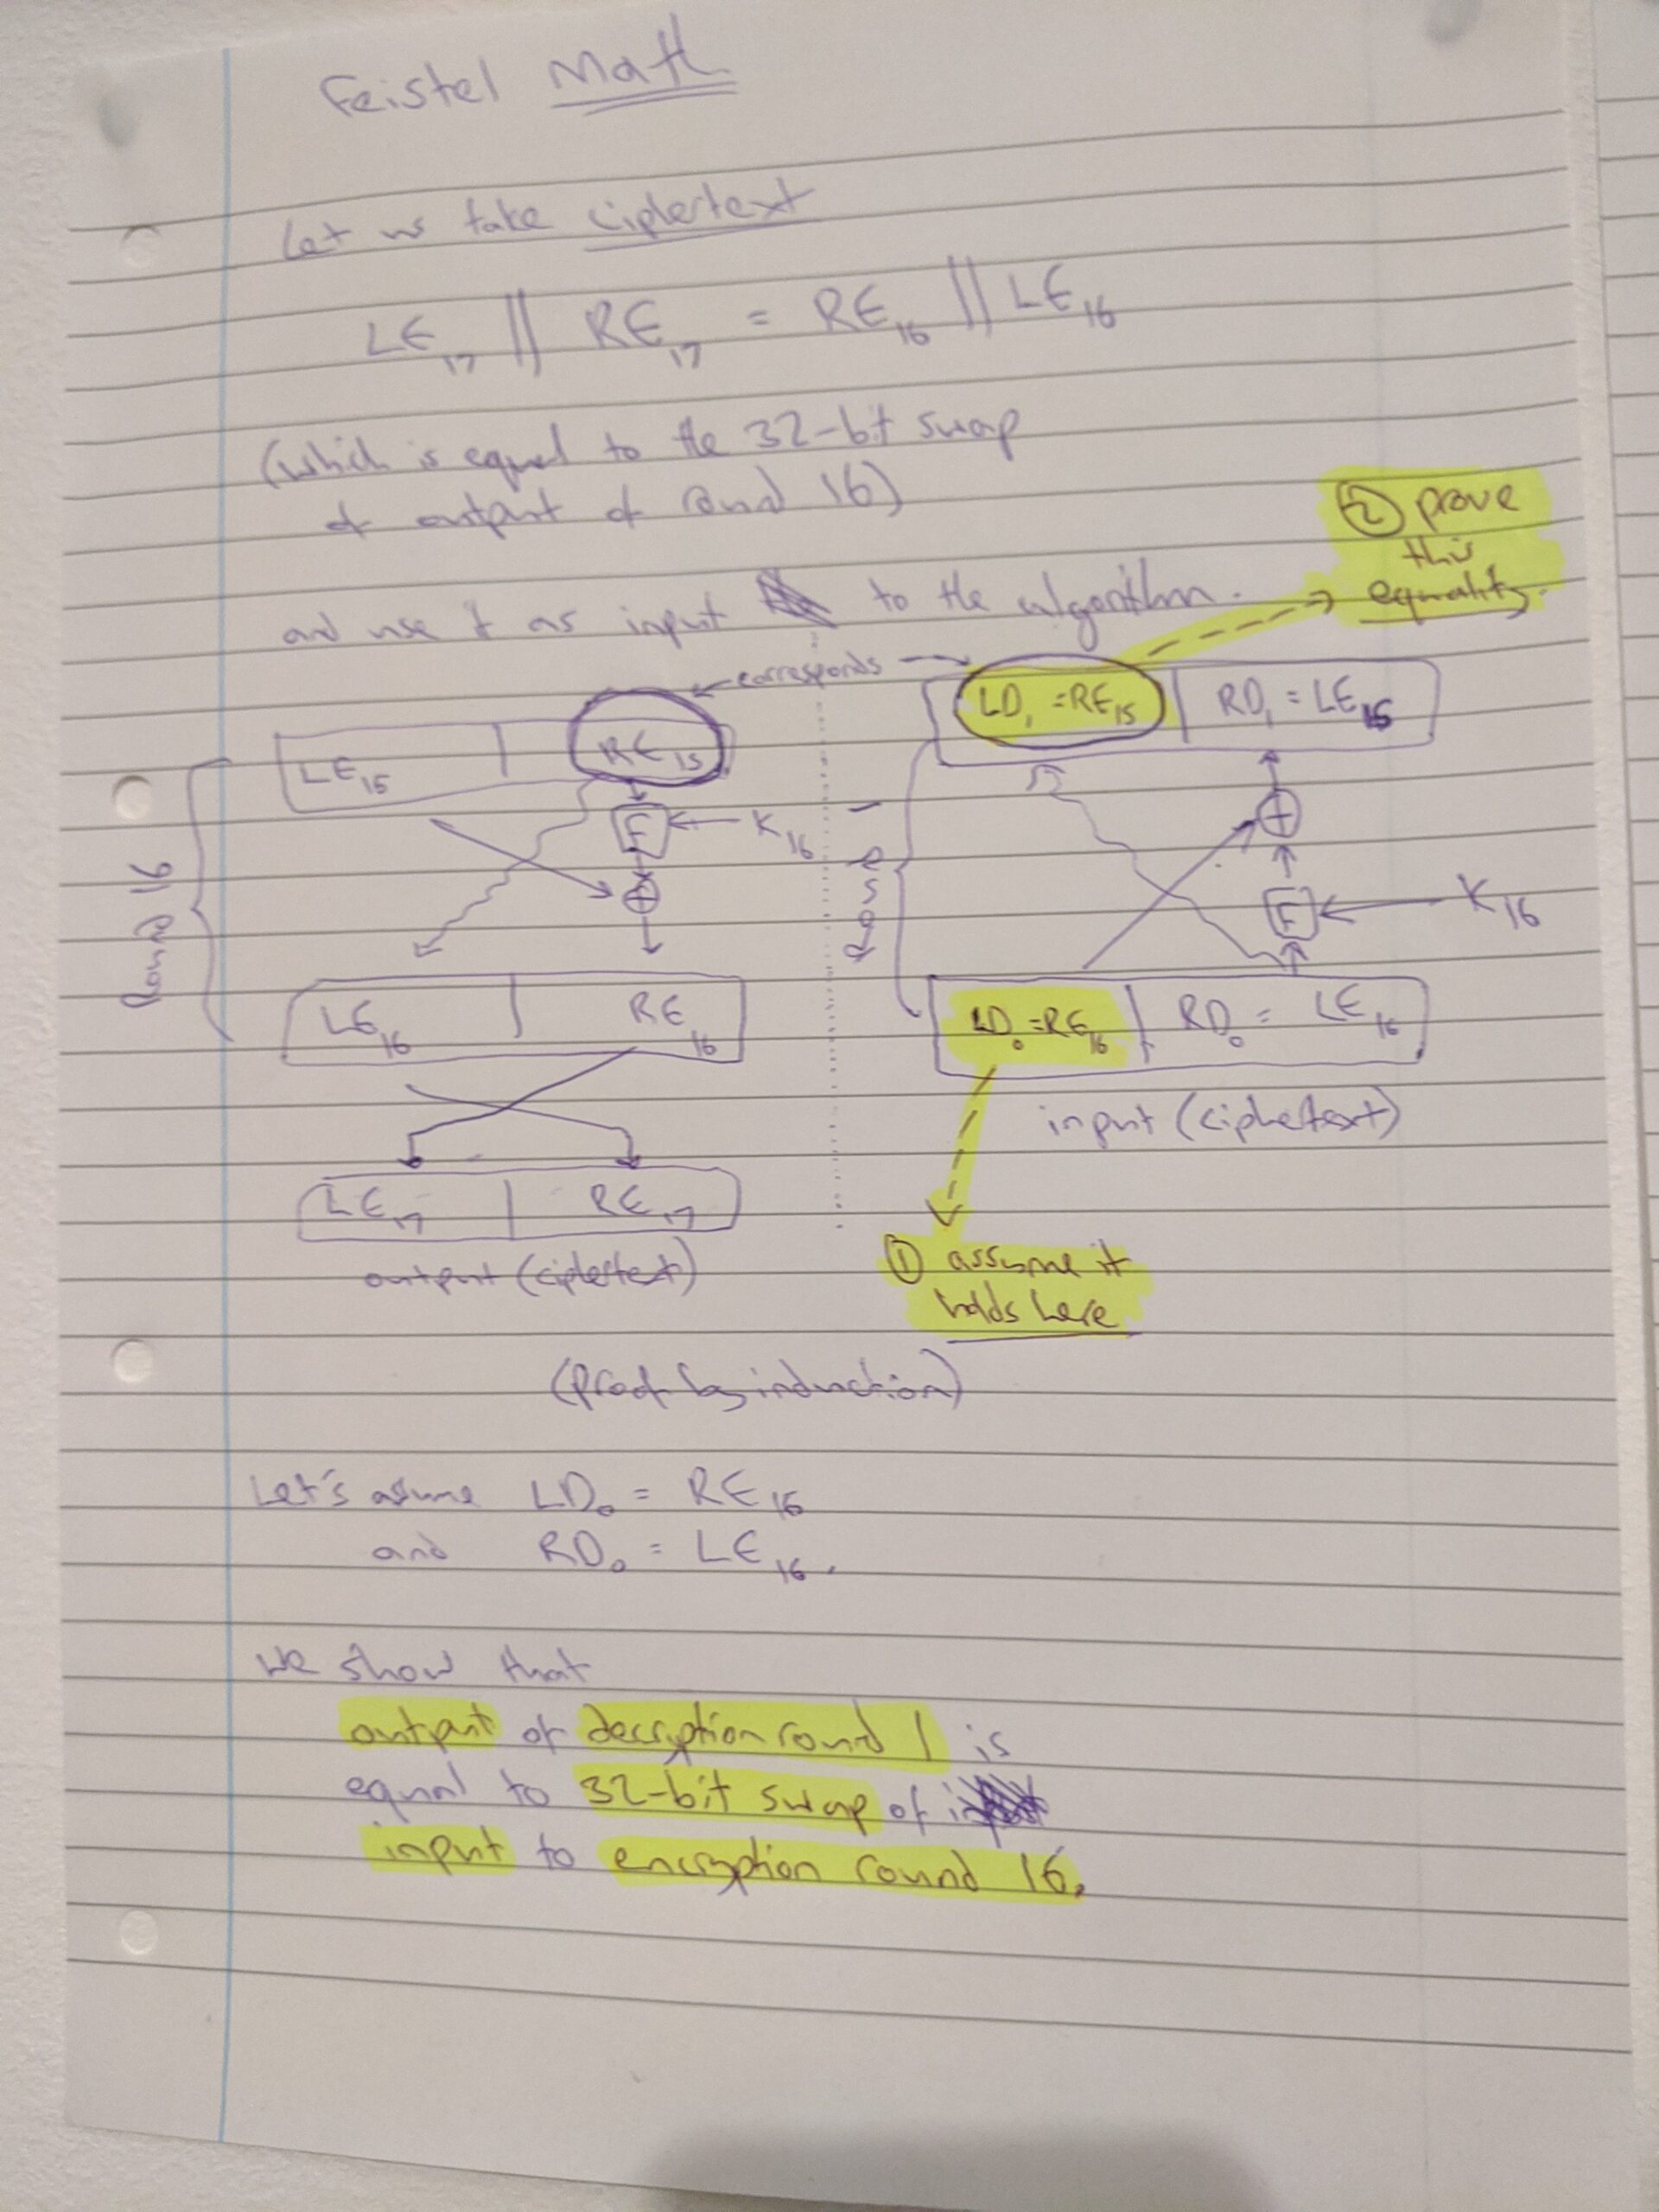 Feistel Math
Let us take ciphertext
LE₁₇ || RE₁₇ = RE₁₆ || LE₁₆
(which is equal to the 32-bit swap
of output of round 16)
and use it as input to the algorithm.
② prove
this
equality.
corresponds
LE₁₅ | RE₁₅
F
K₁₆
+
Round 16
LE₁₆ | RE₁₆
LE₁₇ | RE₁₇
output (ciphertext)
LD₁ = RE₁₅ | RD₁ = LE₁₅
+
F
K₁₆
LD₀ = RE₁₆ | RD₀ = LE₁₆
input (ciphertext)
① assume it
holds here
(Proof by induction)
Let's assume LD₀ = RE₁₆
and RD₀ = LE₁₆.
We show that
output of decryption round 1 is
equal to 32-bit swap of
input to encryption round 16.